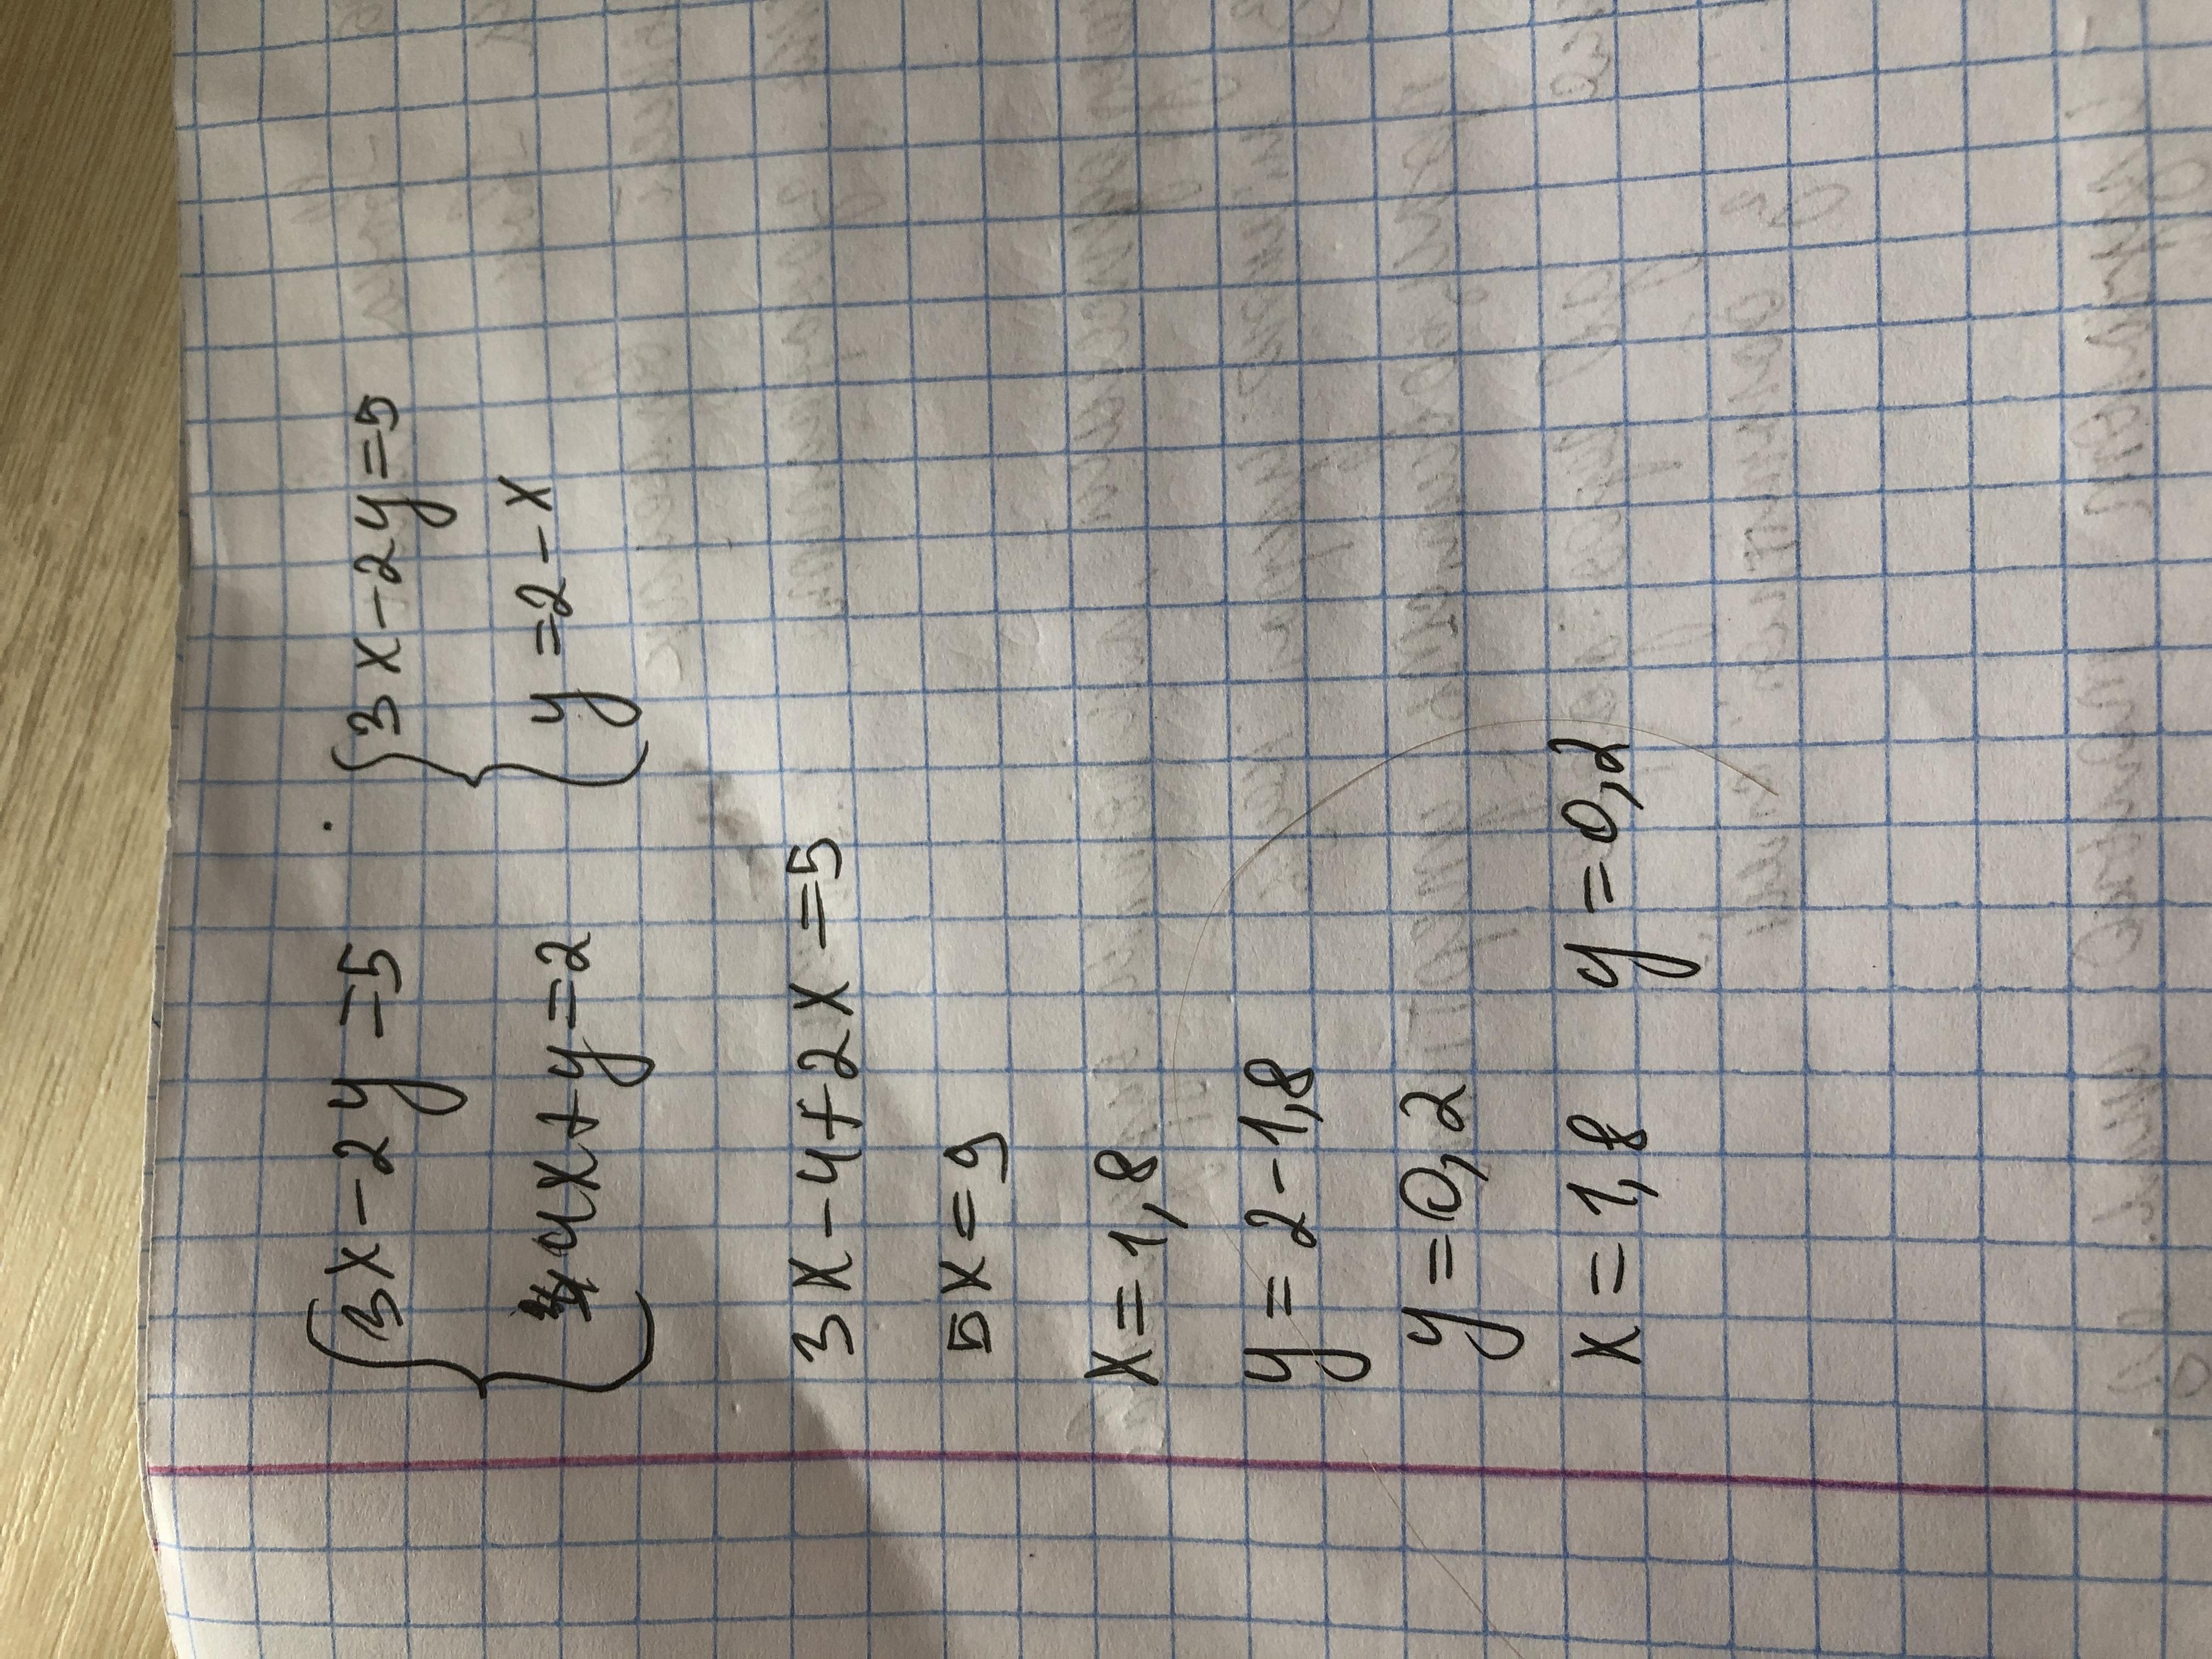 3x-2y=5 3x-2y=5
4x+y=2 y=2-x
3x-4+2x=5
5x=9
x=1,8
y=2-1,8
y=0,2
x=1,8 y=0,2